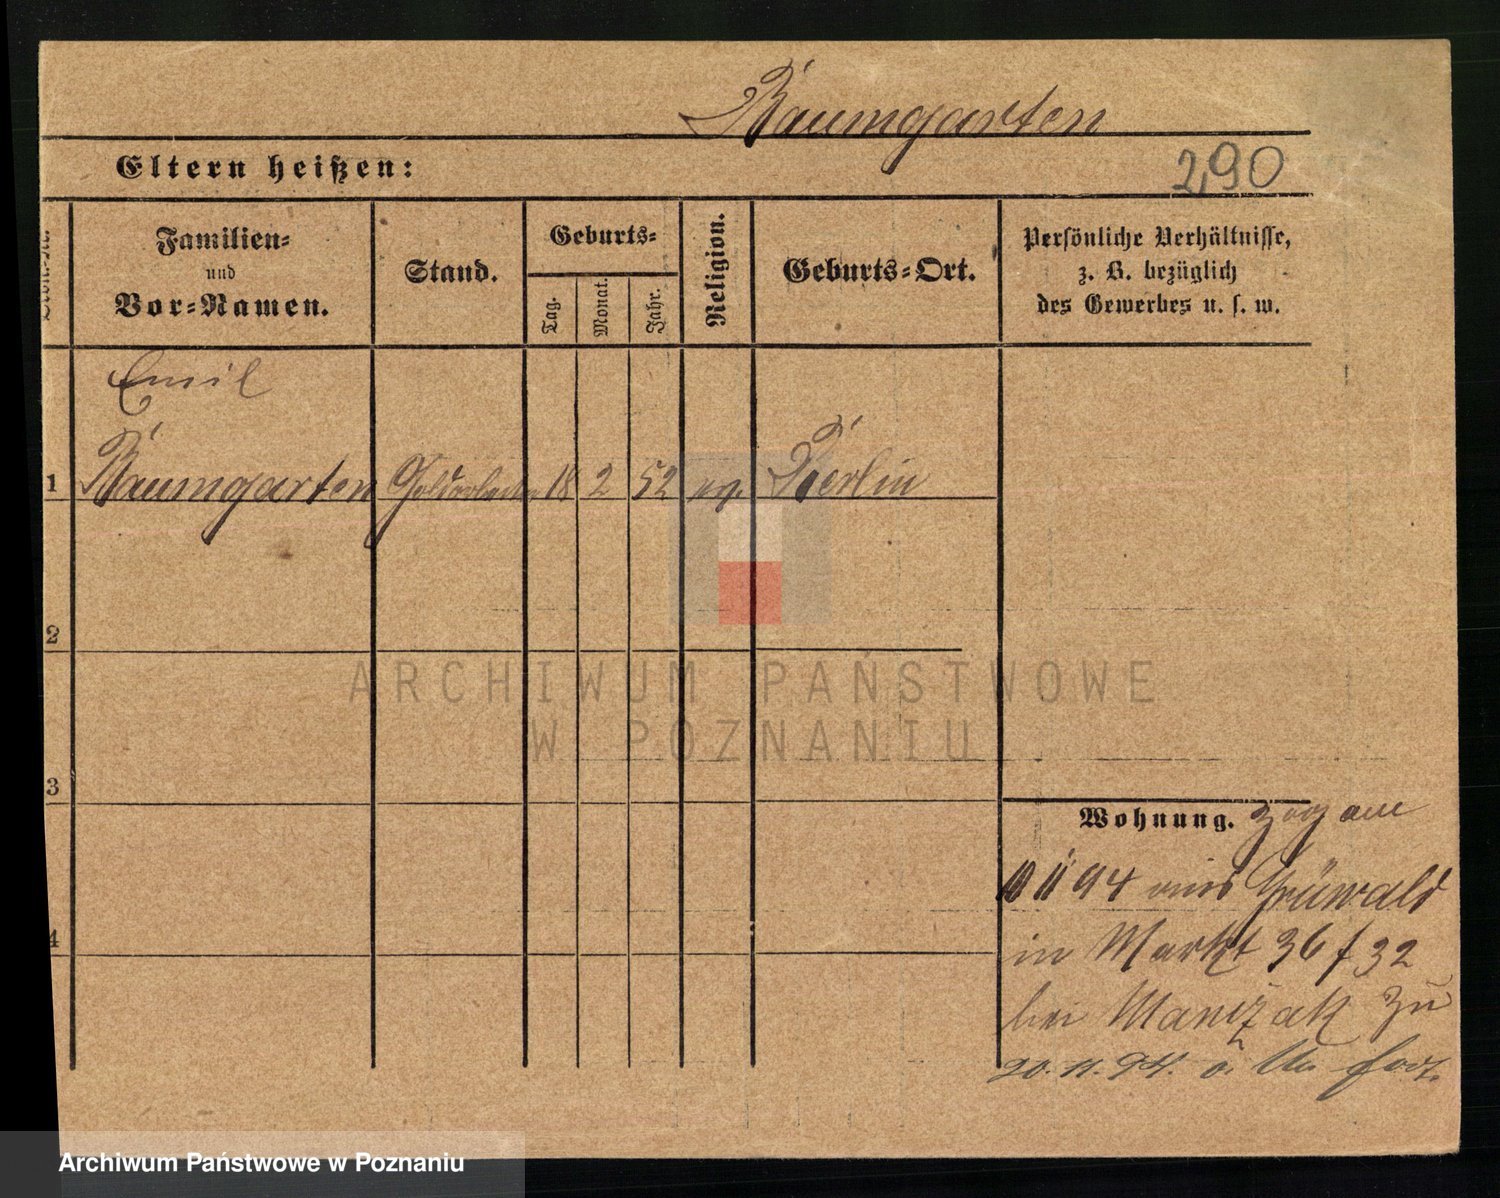 Baumgarten
Eltern heißen:
290
Familien-
und
Vor-Namen.
Stand.
Geburts-
Tag.
Monat.
Jahr.
Religion.
Geburts-Ort.
Persönliche Verhältnisse,
z. B. bezüglich
des Gewerbes u. s. w.
Emil
1 Baumgarten Goldarbeiter 18 2 52 ev. Berlin
2
3
4
Wohnung. Zog am
10 11 94 aus Grüwald
in Markt 36 f 32
bei Manczak zu
20. 11. 94. o. fort.
ARCHIWUM PAŃSTWOWE
W POZNANIU
Archiwum Państwowe w Poznaniu